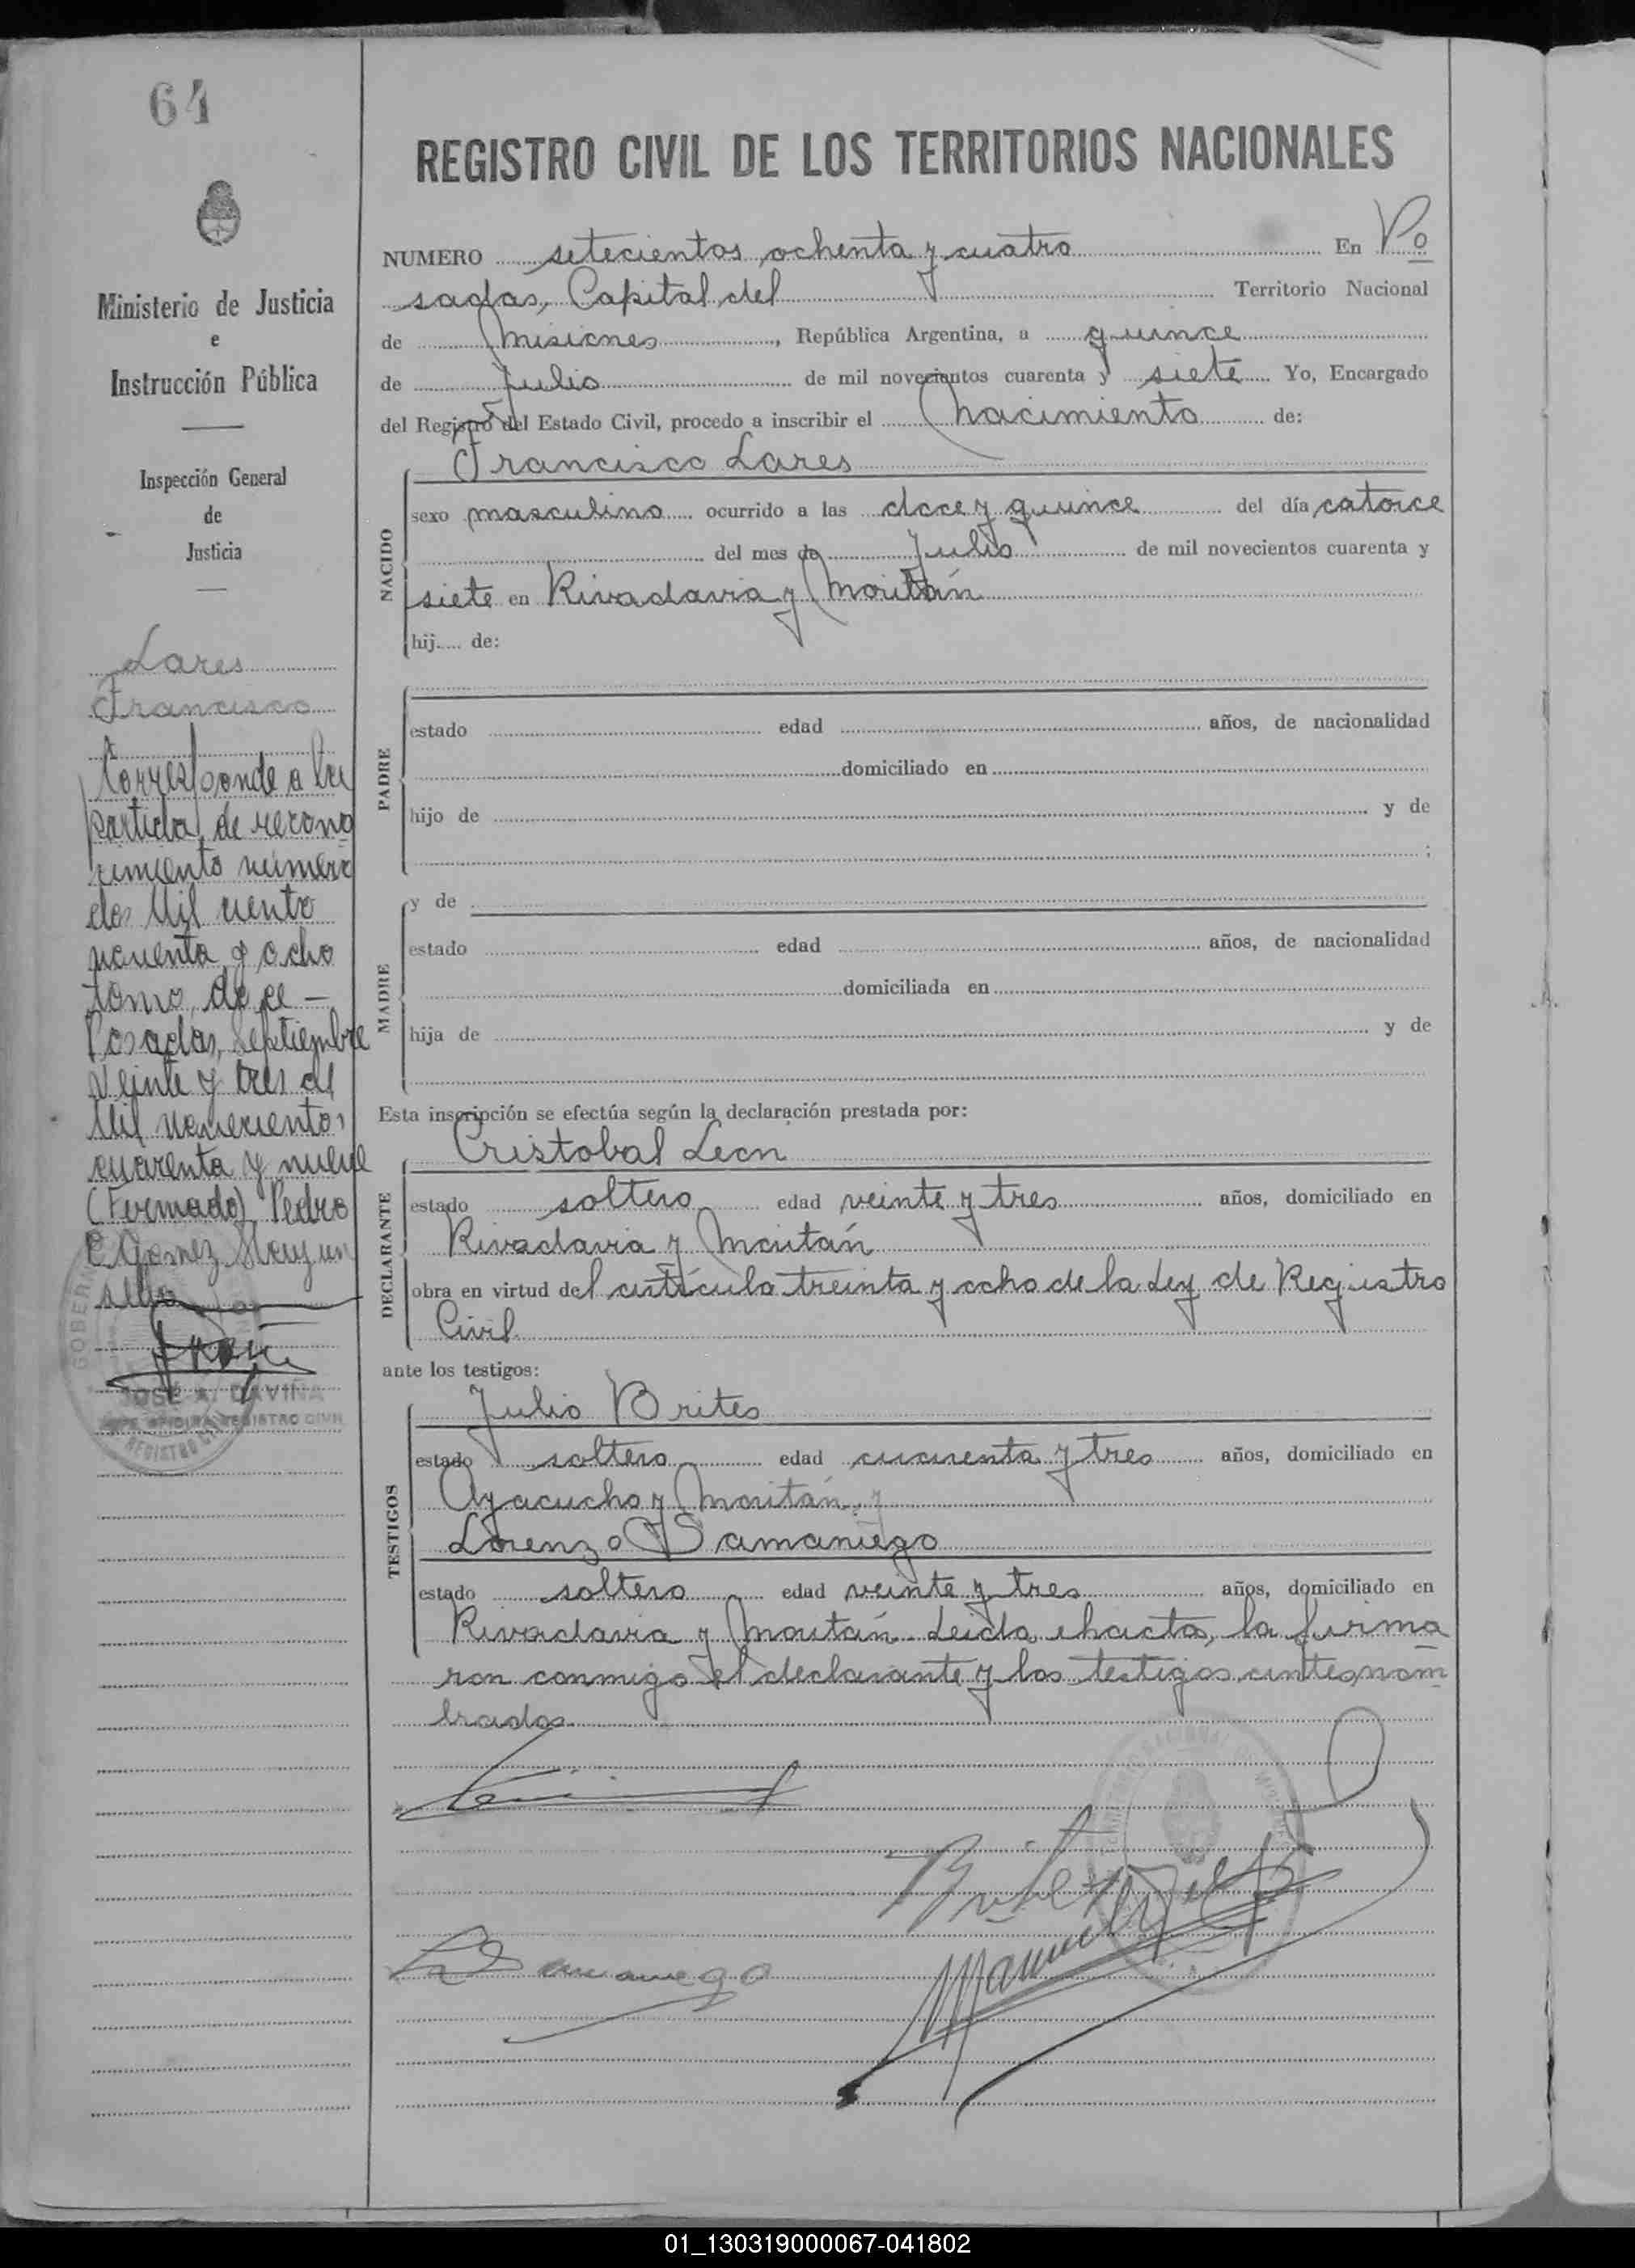 64
REGISTRO CIVIL DE LOS TERRITORIOS NACIONALES
NUMERO setecientos ochenta y cuatro En Po
sadas, Capital del Territorio Nacional
de Misiones, República Argentina, a quince
de Julio de mil novecientos cuarenta y siete Yo, Encargado
del Registro del Estado Civil, procedo a inscribir el Nacimiento de:
NACIDO
Francisco Lares
sexo masculino ocurrido a las doce y quince del día catorce
del mes de Julio de mil novecientos cuarenta y
siete en Rivadavia y Moritán
hij de:
PADRE
estado edad años, de nacionalidad
domiciliado en
hijo de y de
;
MADRE
y de
estado edad años, de nacionalidad
domiciliada en
hija de y de
Esta inscripción se efectúa según la declaración prestada por:
DECLARANTE
Cristobal Leon
estado soltero edad veinte y tres años, domiciliado en
Rivadavia y Moritán
obra en virtud del artículo treinta y ocho de la Ley de Registro
Civil
ante los testigos:
TESTIGOS
Julio Brites
estado soltero edad cuarenta y tres años, domiciliado en
Ayacucho y Moritán y
Lorenzo Samaniego
estado soltero edad veinte y tres años, domiciliado en
Rivadavia y Moritán. Leida el acta, la firma
ron conmigo el declarante y los testigos antes nom
brados
Brites
LSamaniego
Manuel
Ministerio de Justicia
e
Instrucción Pública
Inspección General
de
Justicia
Lares
Francisco
Corresponde a la
partida de recono
cimiento número
dos Mil ciento
y ocho
tomo doce -
Posadas, Septiembre
veinte y tres de
Mil novecientos
cuarenta y nueve
(Firmado) Pedro
E Gomez Hay un
sello
JOSÉ A. DAVIÑA
JEFE OFICINA REGISTRO CIVIL
01_130319000067-041802